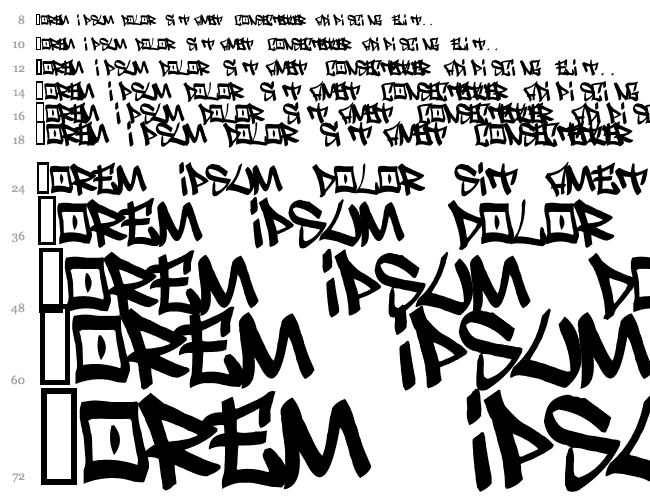 8 □orem ipsum dolor sit amet consectetuer adipiscing elit..
10 □orem ipsum dolor sit amet consectetuer adipiscing elit..
12 □orem ipsum dolor sit amet consectetuer adipiscing elit..
14 □orem ipsum dolor sit amet consectetuer adipiscing
16 □orem ipsum dolor sit amet consectetuer adipisc
18 □orem ipsum dolor sit amet consectetuer
24 □OREM iPSUM DOLOR SiT AMET
36 □OREM iPSUM DOLOR
48 □OREM iPSUM DO
60 □OREM iPSUM
72 □OREM iPSU